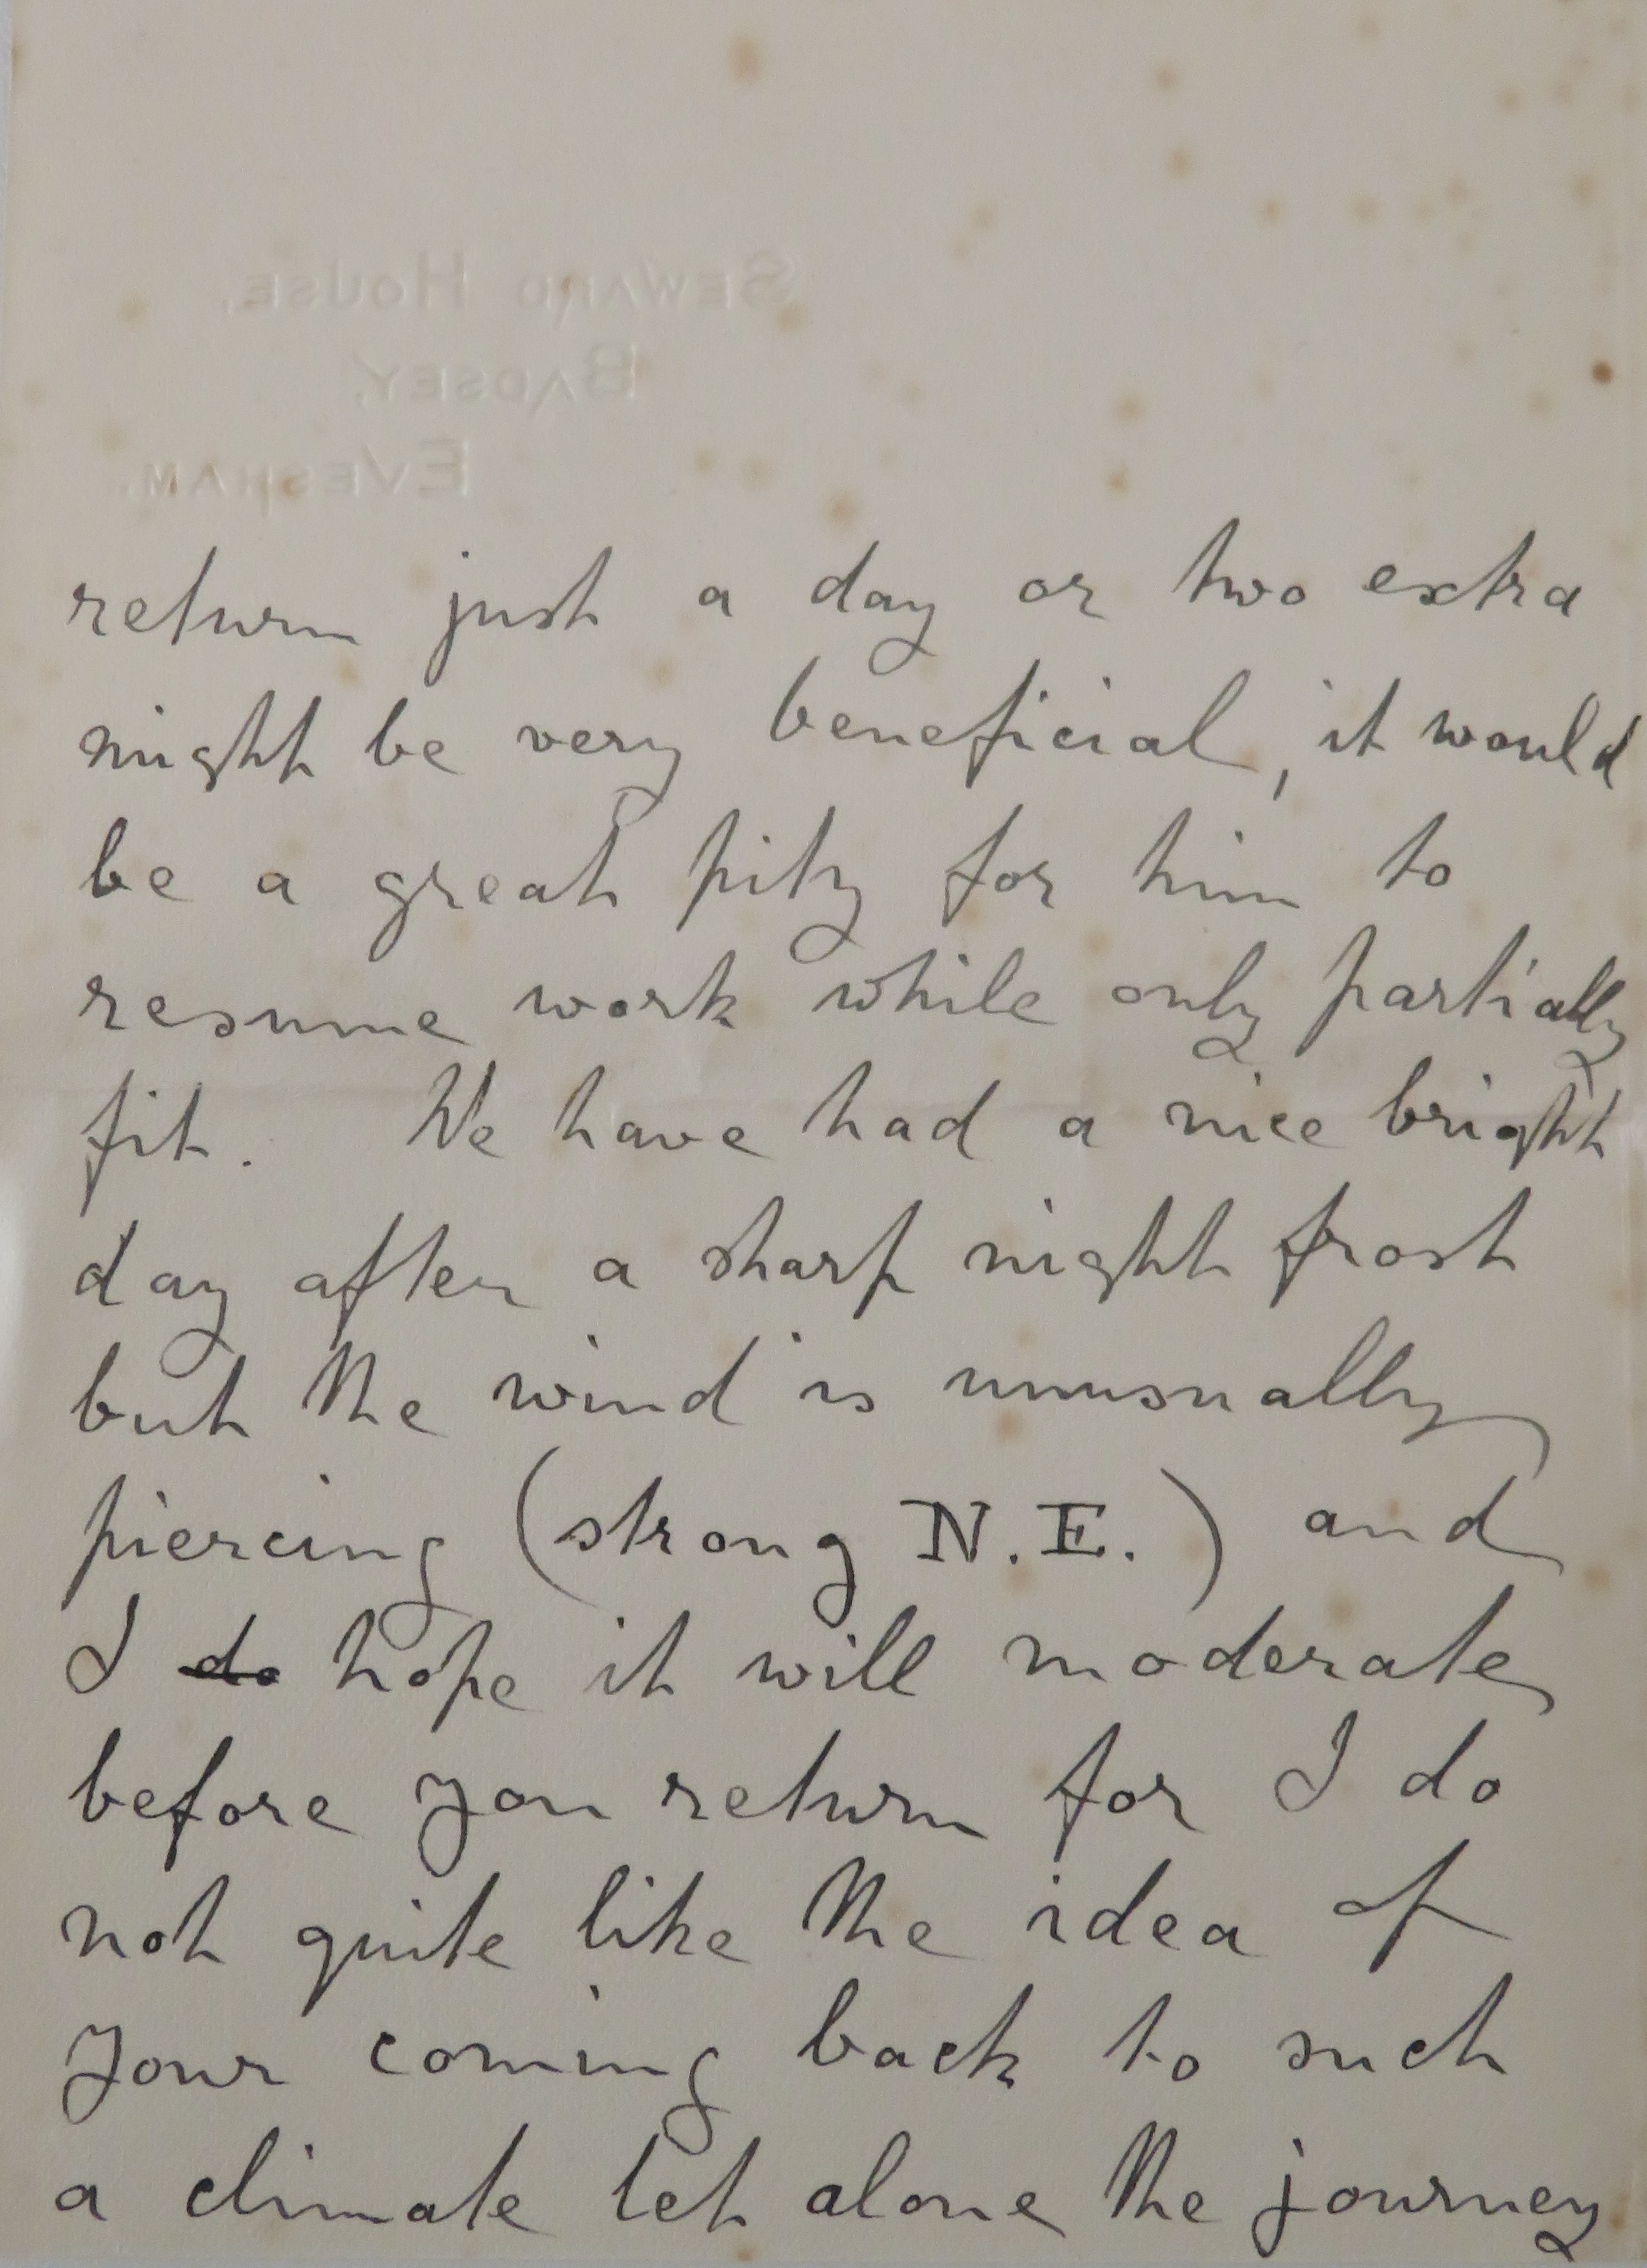 Seward House,
Badsey,
Evesham.
return just a day or two extra
might be very beneficial, it would
be a great pity for him to
resume work while only partially
fit. We have had a nice bright
day after a sharp night frost
but the wind is unusually
piercing (strong N.E.) and
I do hope it will moderate
before you return for I do
not quite like the idea of
your coming back to such
a climate let alone the journey